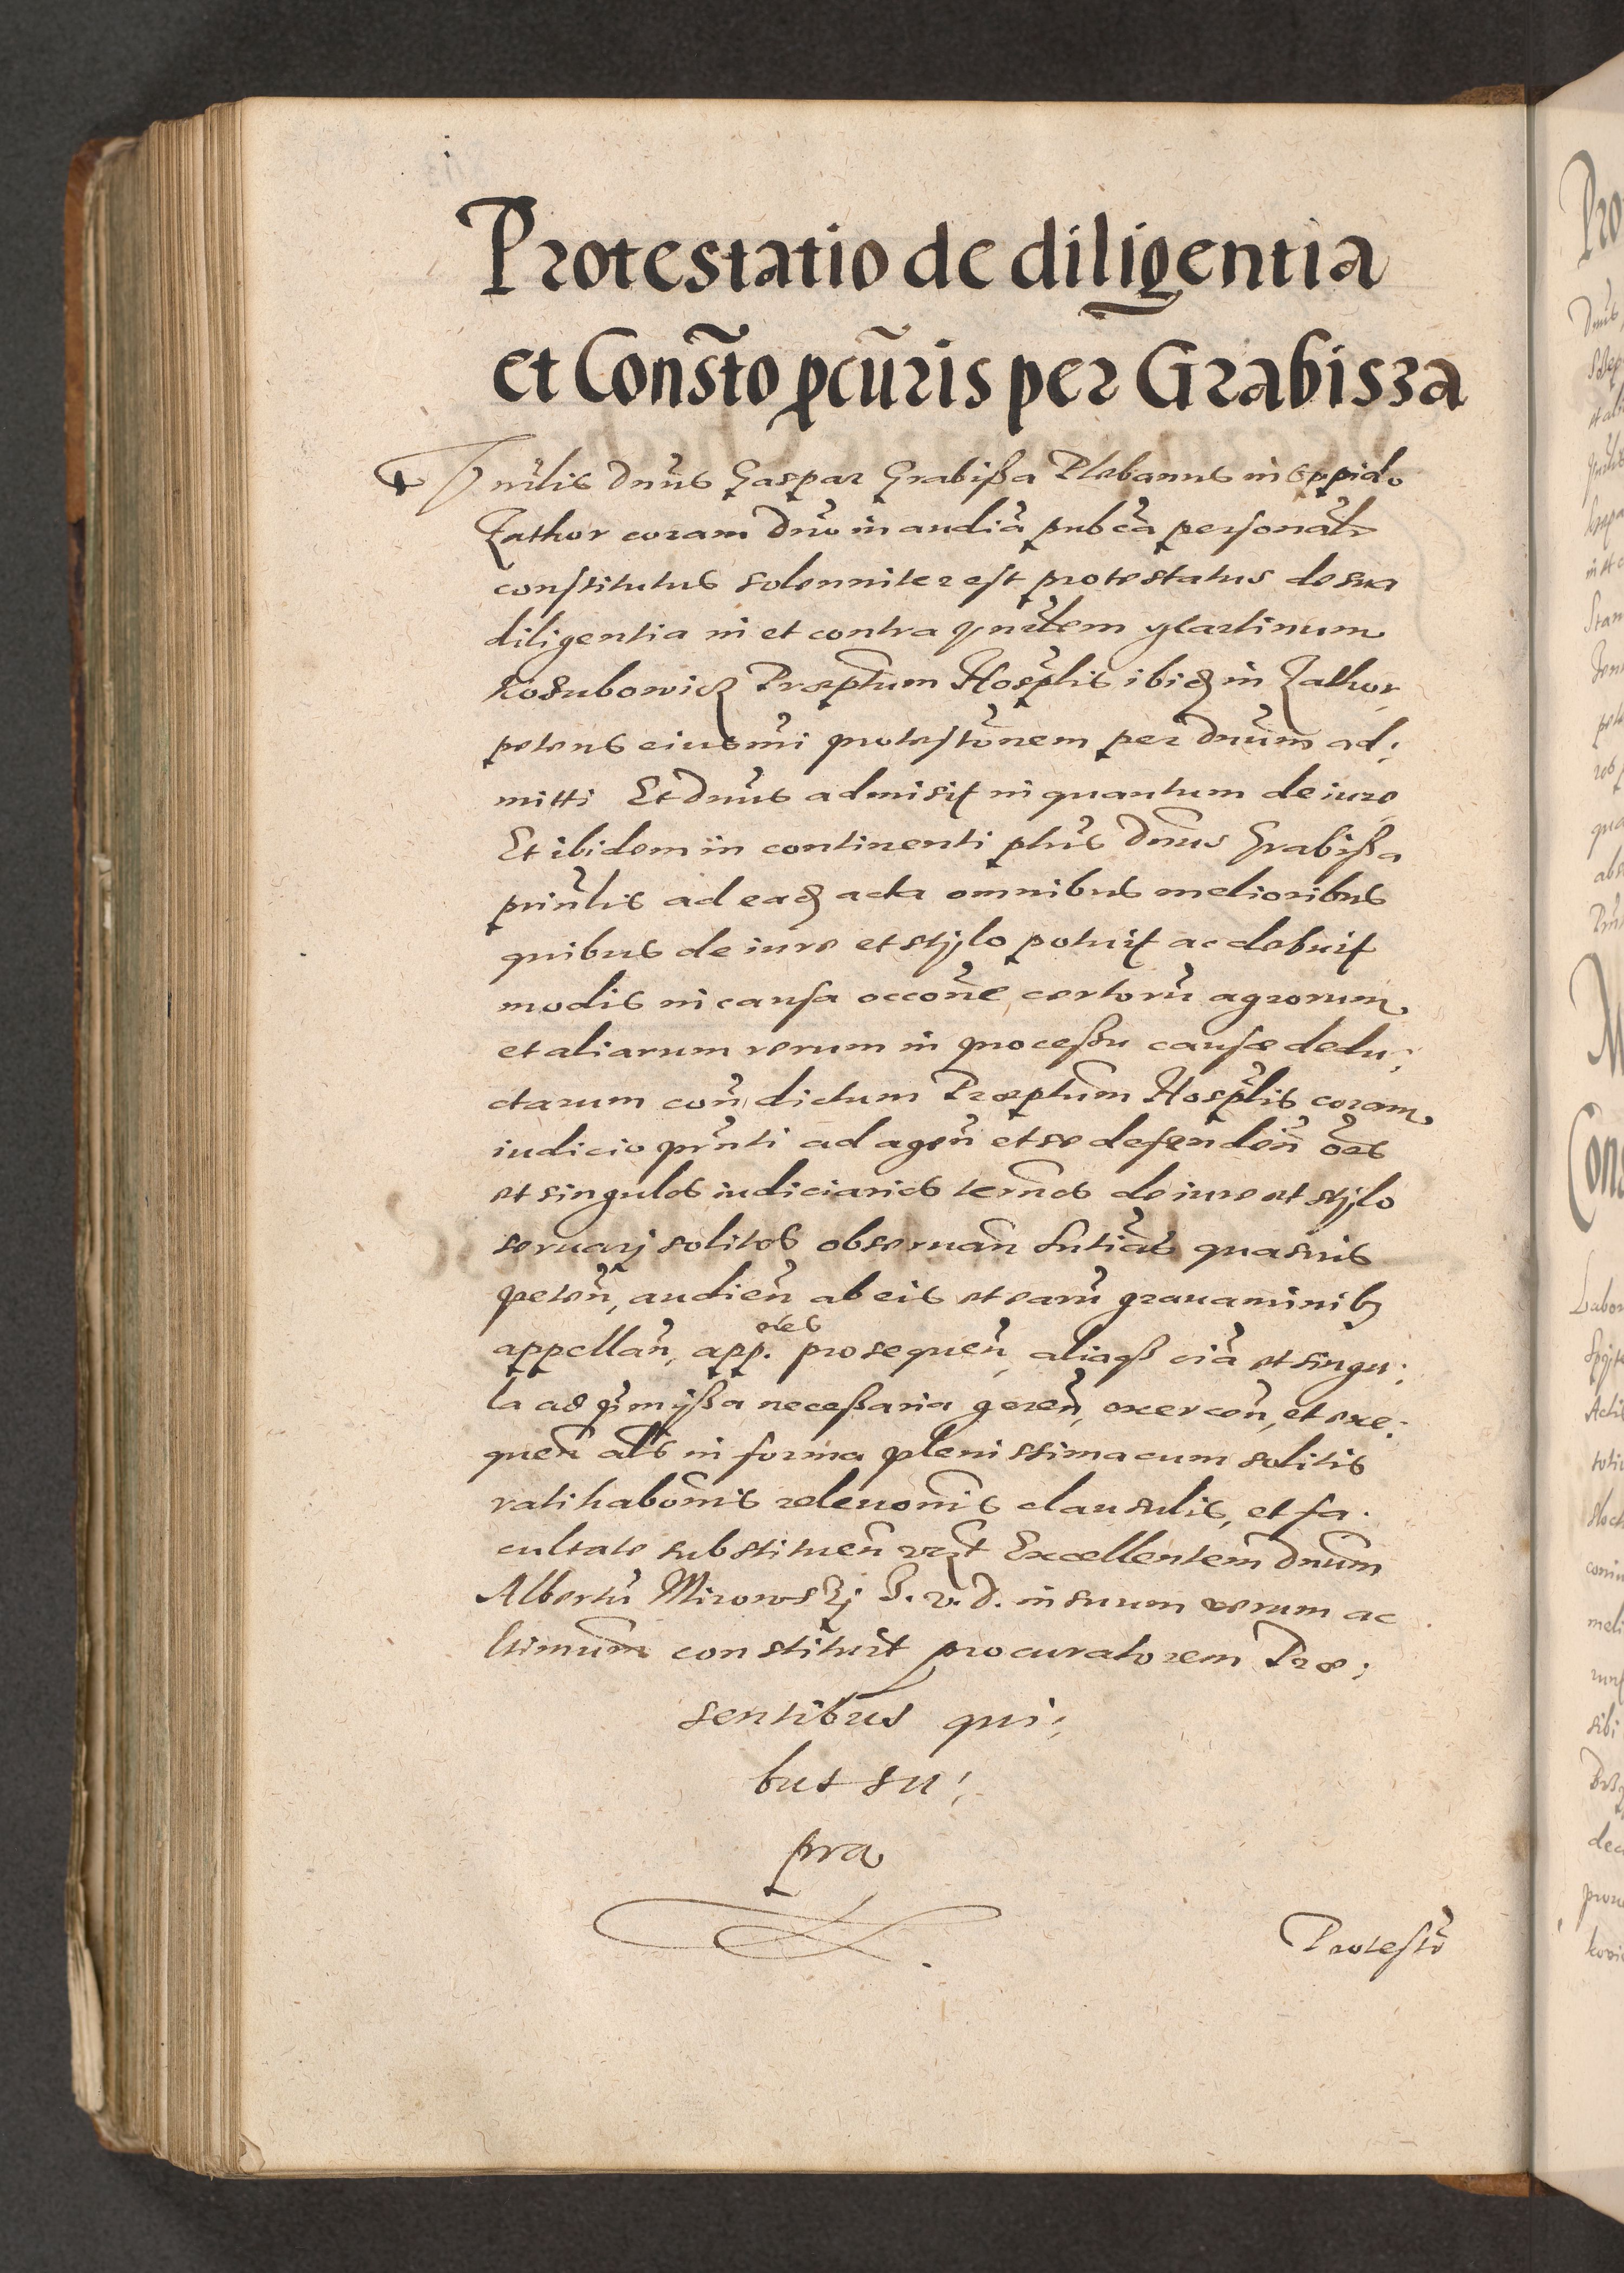 Protestatio de diligentia
et Consto pcuris per Grabisza
Dnus Gaspar Grabißa Plebanus in oppido
Zathor coram Dno in audia pubca personalr
constitutus solenniter est protestatus de sua
diligentia in et contra Martinum
Kosubowicz Præptum Hosplis ibid in Zathor
petens eiusmi protestonem per Dnum ad:
mitti Et Dnus admisit in quantum de iure
Et ibidem in continenti Dnus Grabißa
prinlis ad ead acta omnibus melioribus
quibus de iure et stylo potuit ac debuit
modis in causa occone certoru agrorum
et aliarum rerum in processu causæ dedu:
ctarum con dictum Præptum Hosplis coram
iudicio prnti ad agen et se defenden oes
et singulos iudiciarios termos de iure et stylo
seruarj solitos obseruan sntias quasuis
peten, audien ab eis et earu grauaminib
appellan, app. oes prosequen, aliaqß oia et singu:
la ad prmissa necessaria geren, exercen, et exe:
quen als in forma plenissima cum solitis
ratihabonis releuonis clausulis, et fa.
cultate substituen Excellentem Dnum
Albertu Mirowskj J. v. D. in suum verum ac
ltimum constituit procuratorem Præ:
sentibus qui:
bus su:
pra
Protesto